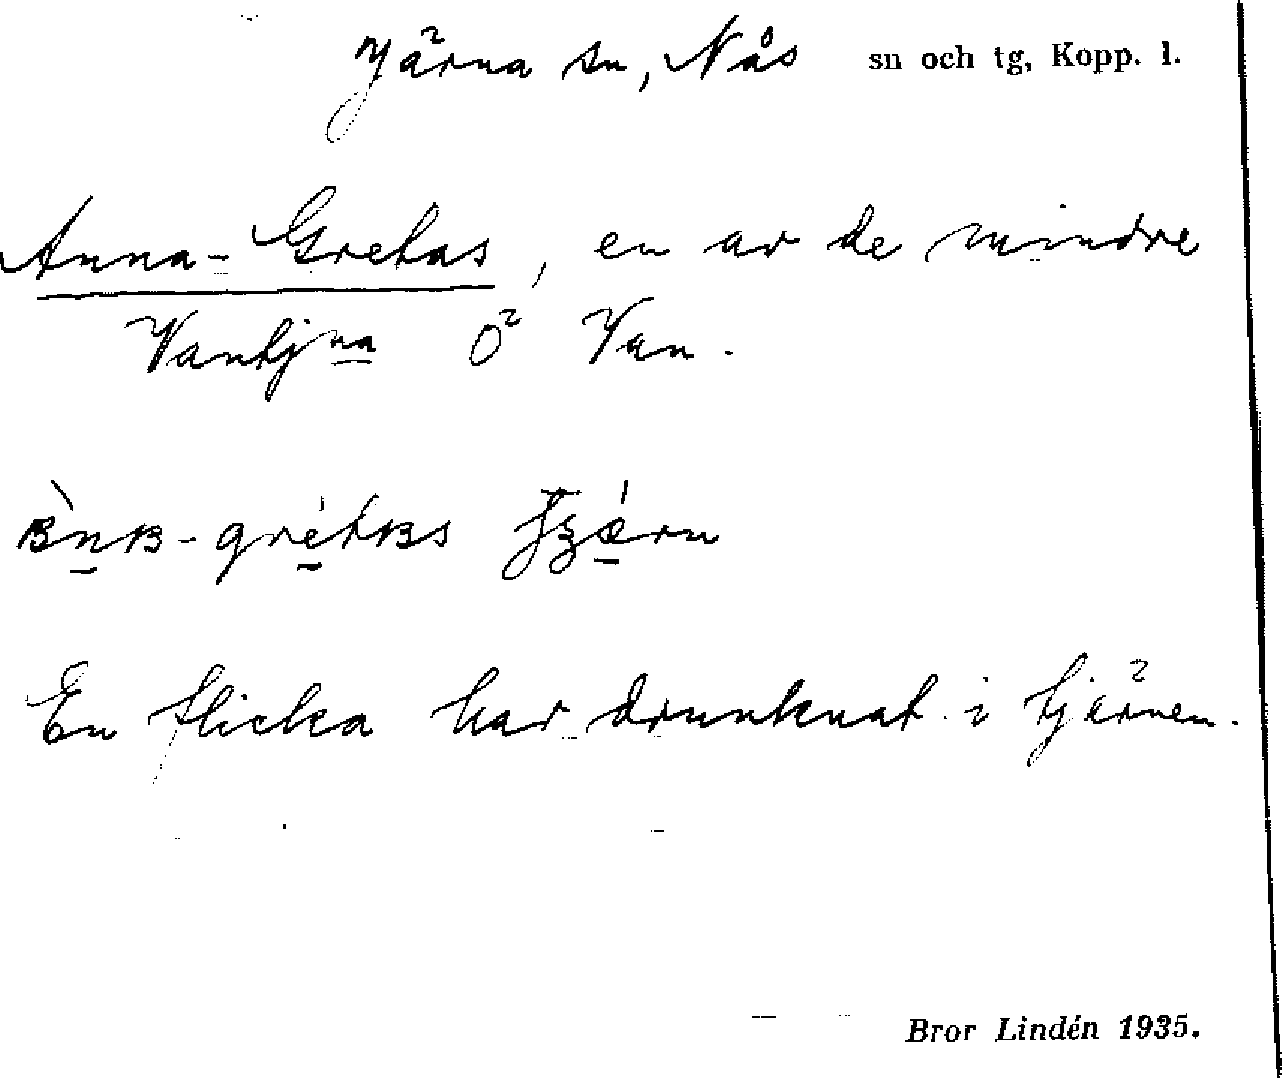 Järna sn, Nås sn och tg, Kopp. l.
Anna-Gretas, en av de mindre
Vantjna O² Van.
En flicka har drunknat i tjärnen.
Bror Lindén 1935.